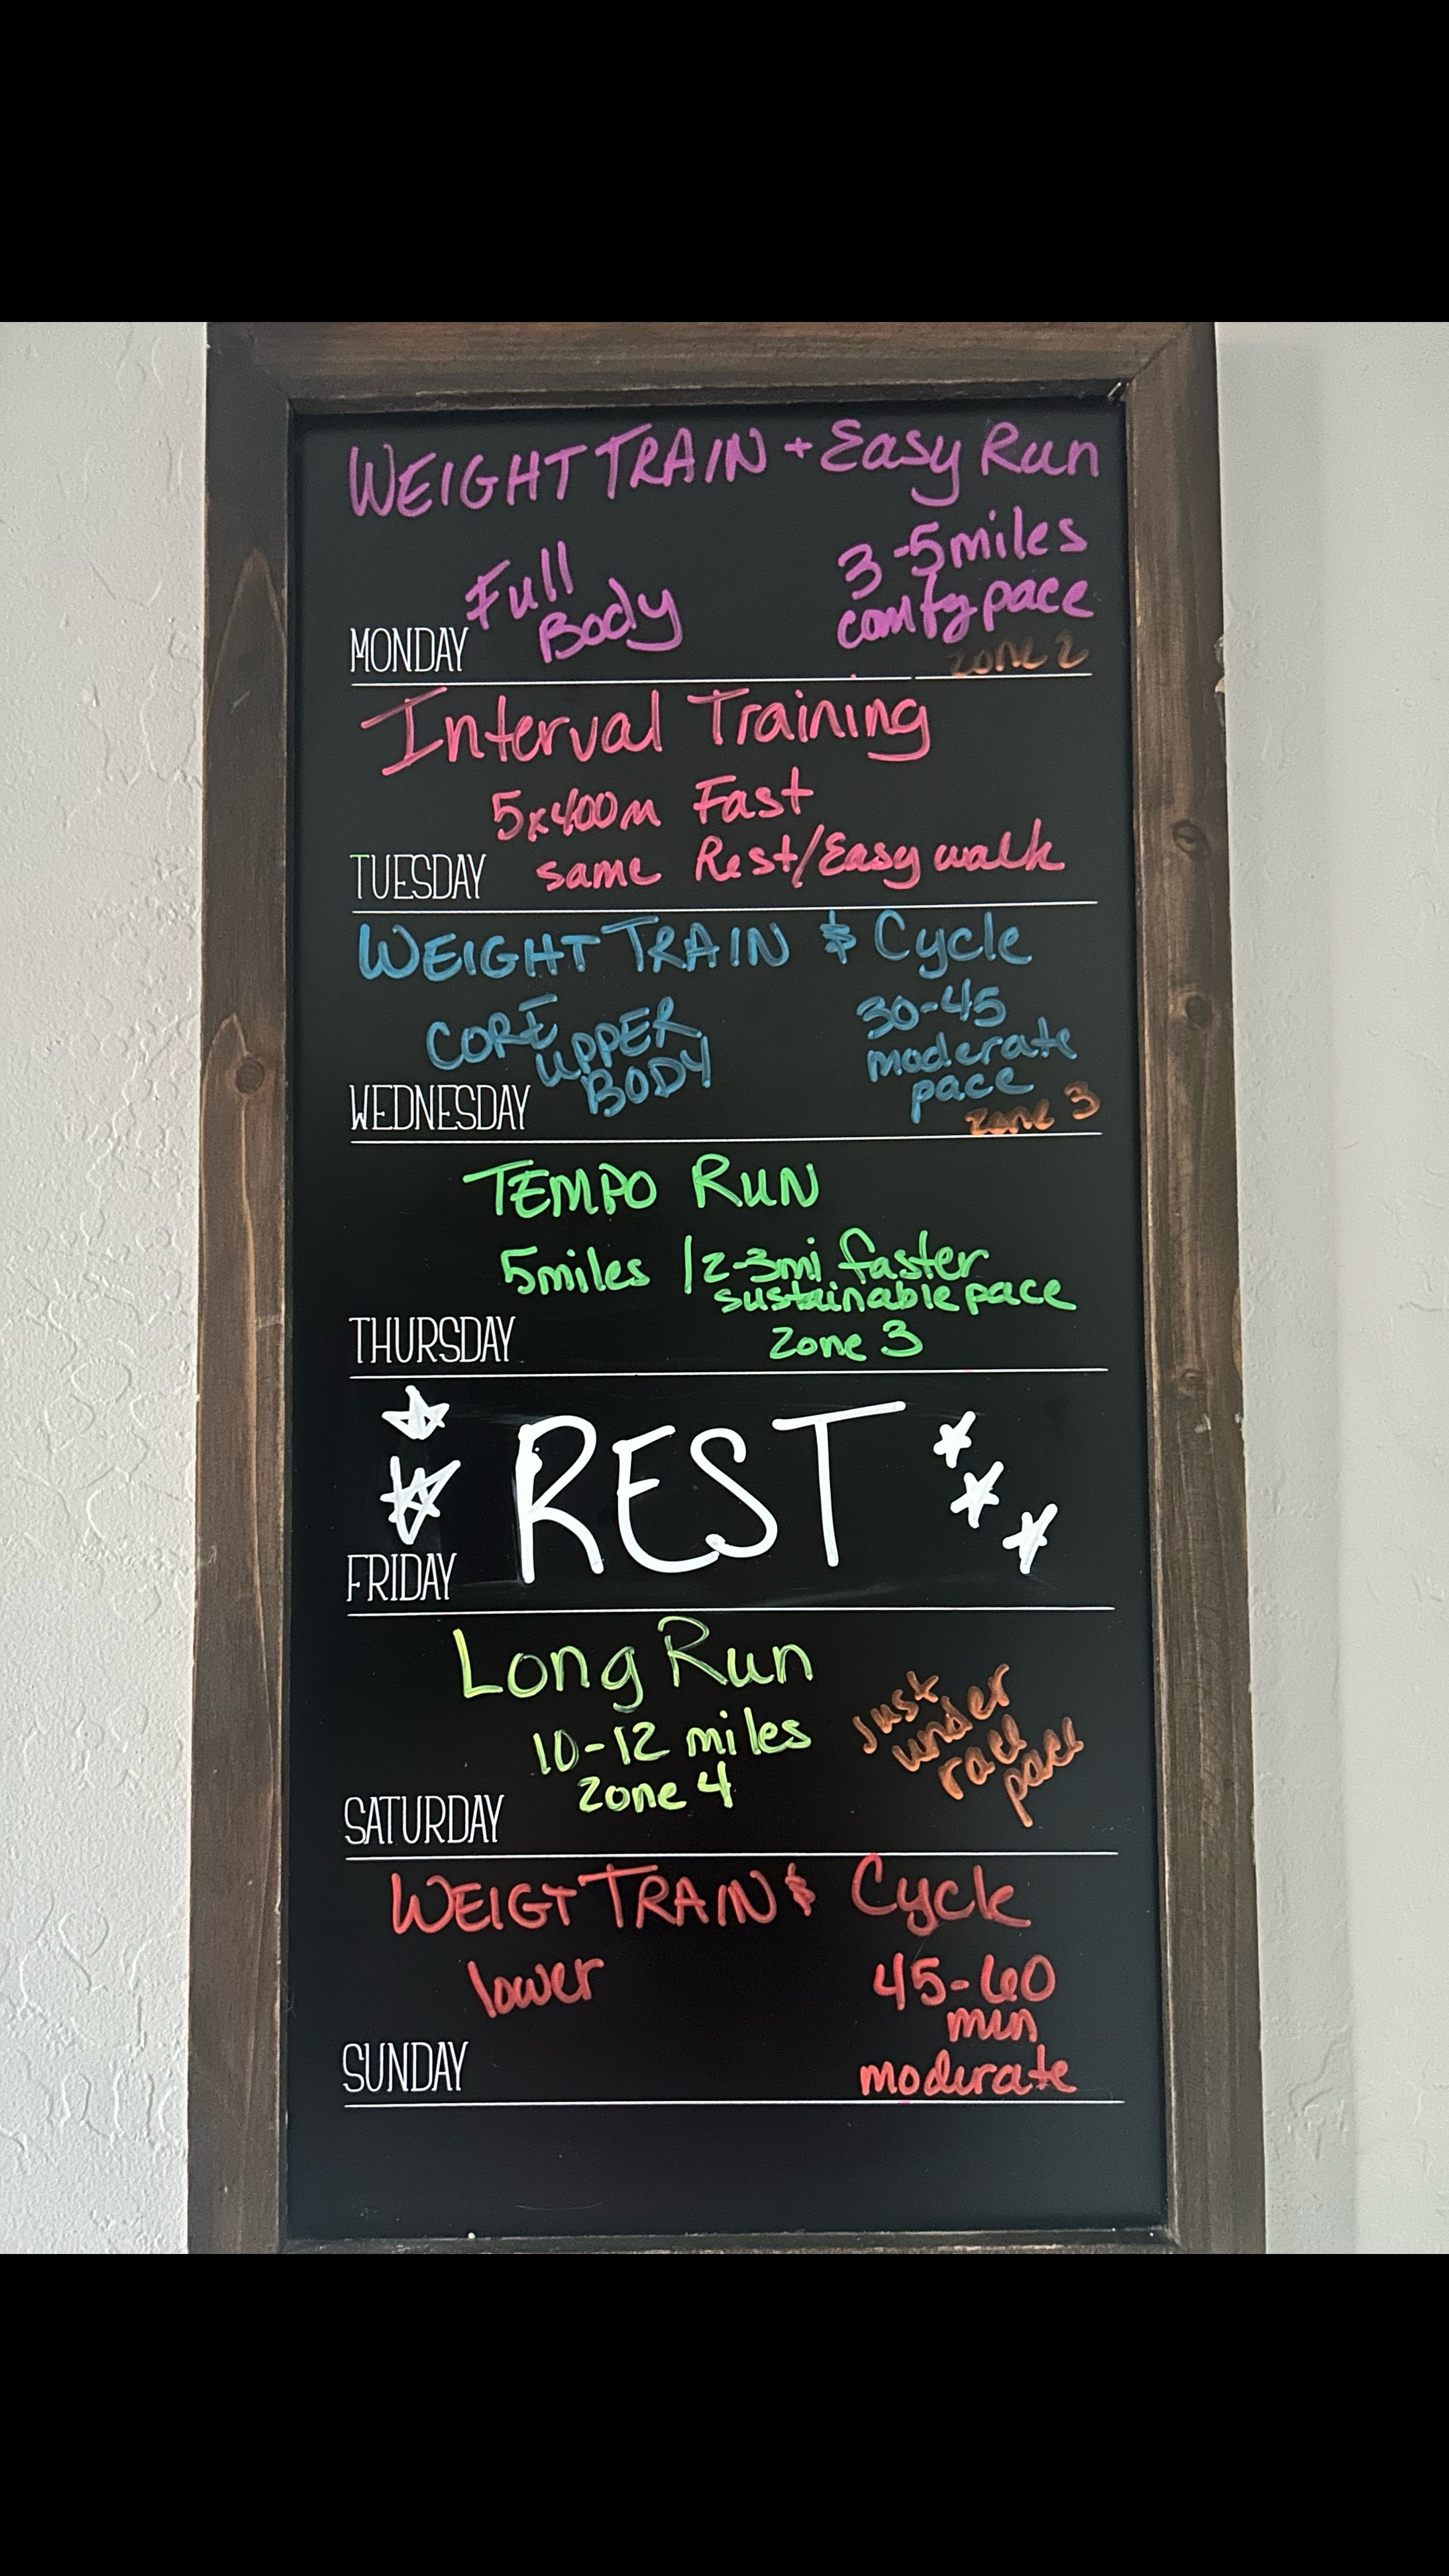 WEIGHT TRAIN + Easy Run
Full
Body
3-5 miles
comfy pace
zone 2
MONDAY
Interval Training
5x400m Fast
same Rest/Easy walk
TUESDAY
WEIGHT TRAIN & Cycle
CORE UPPER
BODY
30-45
moderate
pace
zone 3
WEDNESDAY
TEMPO RUN
5miles / 2-3mi faster
sustainable pace
zone 3
THURSDAY
REST
FRIDAY
Long Run
10-12 miles
zone 4
just
under
race
pace
SATURDAY
WEIGT TRAIN & Cycle
lower
45-60
min
moderate
SUNDAY